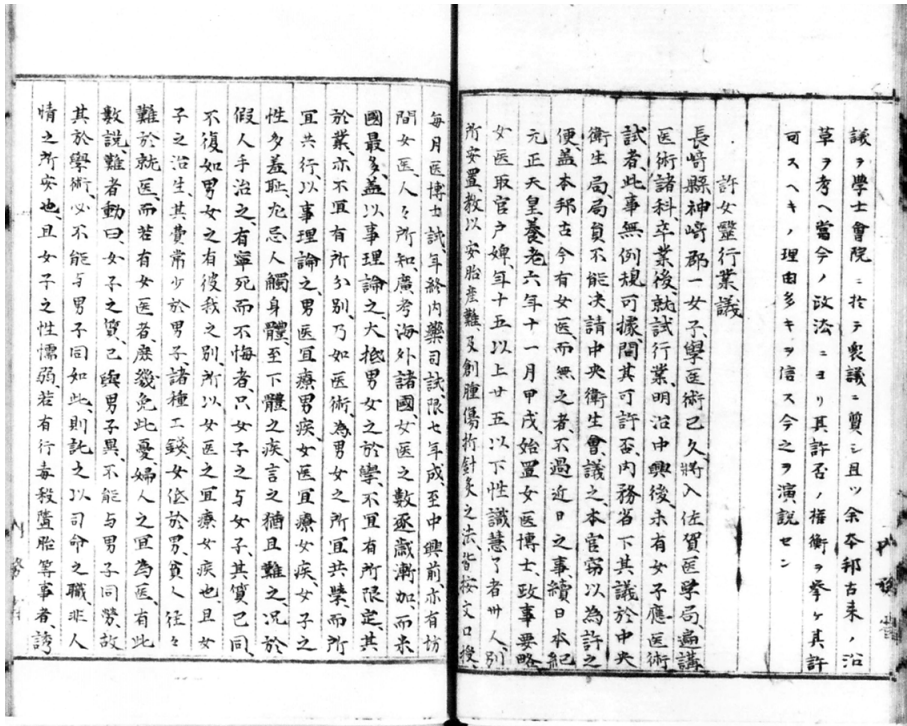 議ヲ學士會院ニ於テ衆議ニ質シ且ツ余本邦古来ノ沿
革ヲ考ヘ當今ノ政法ニヨリ其許否ノ権衡ヲ挙ケ其許
可スヘキノ理由多キヲ信ス今之ヲ演説セン
許女醫行業議
長﨑縣神﨑郡一女子學医術已久、将入佐賀医学局、遍講
医術諸科、卒業後、就試行業、明治中興後、未有女子應医術
試者、此事無例規可據、問其可許否、内務省下其議於中央
衛生局、局員不能决、請中央衛生會、議之、本官窃以為許之
便、葢本邦古今有女医、而無之者、不過近日之事、續日本紀
元正天皇養老六年十一月甲戌、始置女医博士、政事要略
女医取官戸婢、年十五以上廿五以下、性識慧了者卅人、別
所安置、教以安胎産難、及創腫傷折針灸之法、皆按文口授
毎月医博士試、年終内藥司試、限七年成、至中興前亦有坊
間女医、人々所知、廣考海外諸國、女医之數、逐歳漸加、而米
國最多、葢以事理論之、大抵男女之於學、不宜有所限定、其
於業、亦不宜有所分別、乃如医術、為男女之所宜共學、而所
宜共行、以事理論之、男医宜療男疾、女医宜療女疾、女子之
性多羞耻、尤忌人觸身體、至下體之疾、言之猶且難之、况於
假人手治之、有寧死而不悔者、只女子之与女子、其質已同
不復如男女之有彼我之別、所以女医之宜療女疾也、且女
子之治生、其費常少於男子、諸種工錢、女低於男、貧人往々
難於就医、而若有女医者、庶幾免此憂、婦人之宜為医、有此
數説、難者動曰、女子之質、已與男子異、不能与男子同勞、故
其於學術、必不能与男子同如此、則託之以司命之職、非人
情之所安也、且女子之性懦弱、若有行毒殺墮胎等事者、誘